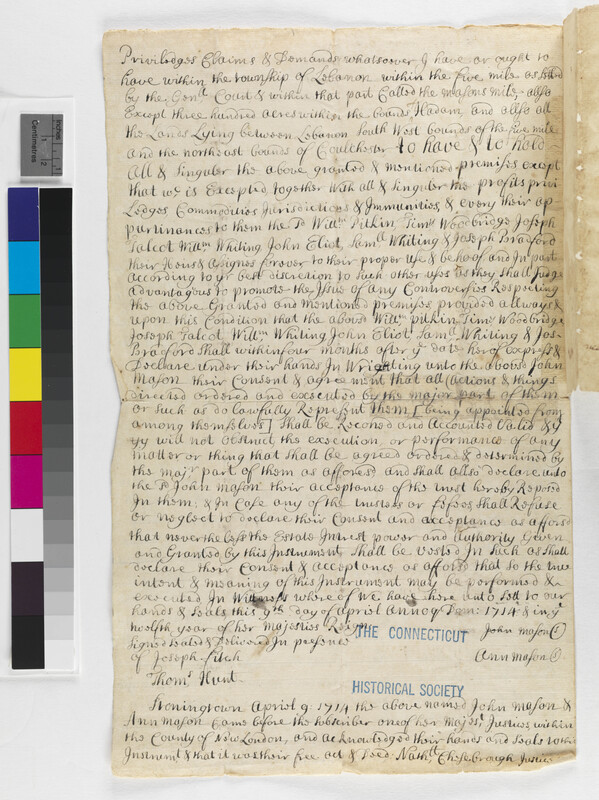 Priviledges Claims & Demands whatsoever I have or ought to
have within the township of Lebanon within the five mile as setled
by the Genll Court & within that part Called the masons mile - allso
Except three hundred acres within the bounds Hadam and allso all
the Lands Lying between Lebanon South West bounds of the five mile
and the northeast bounds of Coulchester to have & to hold
All & singuler the above granted & mentioned premises except
that wc is Excepted together with all & singuler the profits privi
Ledges Commodities Jurisdictions & Immunities, & every their ap
purtinances to them the sd Willm Pitkin, Timo Woodbridge Joseph
Talcot Willm Whiting John Eliot, Samll Whiting & Joseph Bradford
their Heirs & Asignes forever to their proper use & behoof and In part
according to yr best discretion to such other uses as they shall Judge
advantagous to promote the Issue of any Controversies Respecting
the above Granted and mentioned premises provided allways &
upon this Condition that the above Willm pitkin Timo Woodbridge
Joseph Talcot Willm Whiting John Eliot, Samll Whiting & Jos
Bradford shall within four months after ye date herof express &
Declare under their hands In Wrighting unto the above John
Mason their Consent & agreement that all actions & things
directed ordered and executed by the major part of them
or such as do lawfully Represent them, [being appointed from
among themselves] shall be Reconed and Accounted Valid & yt
yy will not obstruct the execution or performance of any
matter or thing that shall be agreed ordered & determined by
the majr part of them as aforesd and shall also declare unto
the sd John mason their acceptance of the trust hereby Reposd
In them: & In Case any of the trustees or feofees shall Refuse
or neglect to declare their Consent and acceptance as aforesd
that nevertheless the Estate Intrest power and authority Given
and Granted by this Instrument shall be vested In such as shall
declare their Consent & acceptance as aforesd that so the true
intent & meaning of this Instrument may be performed &
executed In Wittness whereof We have here unto sett to our
hands & seals this 9th day of april Annoq Dom: 1714 & in ye
twelfth year of her majesties Reign
signed sealed & Delivered In presence
THE CONNECTICUT
John Mason
of Joseph Fitch
Ann Mason
Thoms Hunt
HISTORICAL SOCIETY
Stoningtown April 9 1714 the above named John Mason &
Ann Mason Came before the subscriber one of her majests Justices within
the County of New London, and acknowledged their hands and seals to this
Instrumt & that it was their free act & deed. Nathll Chesebrough Justice
Centimetres
Inches
1
2